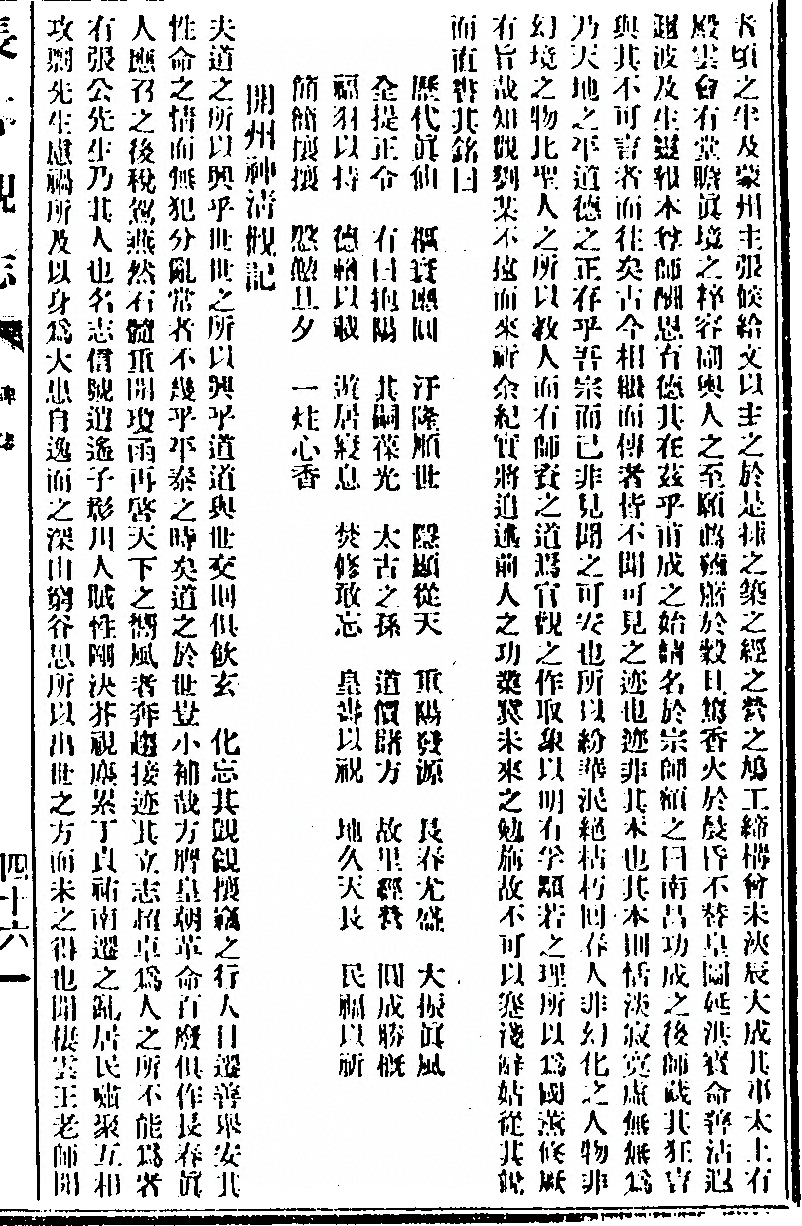 者頃之牟及蒙州主張侯給文以主之於是採之築之經之營之鳩工締構曾未浹辰大成其事太上有
殿雲台有堂瞻眞境之粹容同與人之至願薦 於穀旦篤香火於晨昏不替皇圖延洪寶命 沾遐
邇波及生靈報本尊師酬恩有德其在茲乎甫成之始請名於宗師額之曰南昌功成之後師 其狂言
與其不可言者而往矣古今相繼而傳者皆不聞可見之迹也迹非其本也其本則恬淡寂寞虛無無爲
乃天地之平道德之正存乎吾宗而已非見聞之可及也所以紛華泯絕枯朽回春人非幻化之人物非
幻境之物此聖人之所以敎人而有師資之道爲宮觀之作取象以明有孚顒若之理所以爲國焚修厥
有旨哉知觀劉某不遠而來祈余紀實將追述前人之功業冀未來之勉旃故不可以蹇淺辭姑從其說
而直書其銘曰
歷代眞仙 福實幽回 汙隆順世 隱顯從天 重陽發源 長春尤盛 大振眞風
全提正令 有曰抱陽 其嗣葆光 太古之孫 道價諸方 故里經營 圓成勝概
福羽以持 德輶以載 游居寢息 焚修敢忘 皇壽以祝 地久天長 民福以祈
簡簡攘攘 慇懃旦夕 一炷心香
開州神淸觀記
夫道之所以興乎世世之所以興乎道道與世交則俱飮玄 化忘其覬覦攘竊之行人日遷善舉安其
性命之情而無犯分亂常者不幾乎平泰之時矣道之於世豈小補哉方脾皇朝革命百廢俱作長春眞
人應召之後稅駕燕然石髓重開瓊雨再啓天下之嚮風者奔趨接迹其立志超卓爲人之所不能爲者
有張公先生乃其人也名志信號逍遙子 川人賦性剛決芥視塵累丁貞祐南遷之亂居民嘯聚互相
攻剽先生慮禍所及以身爲大患自逸而之深山窮谷思所以出世之方而未之得也聞棲雲王老師開
長 觀志
碑 
四十六